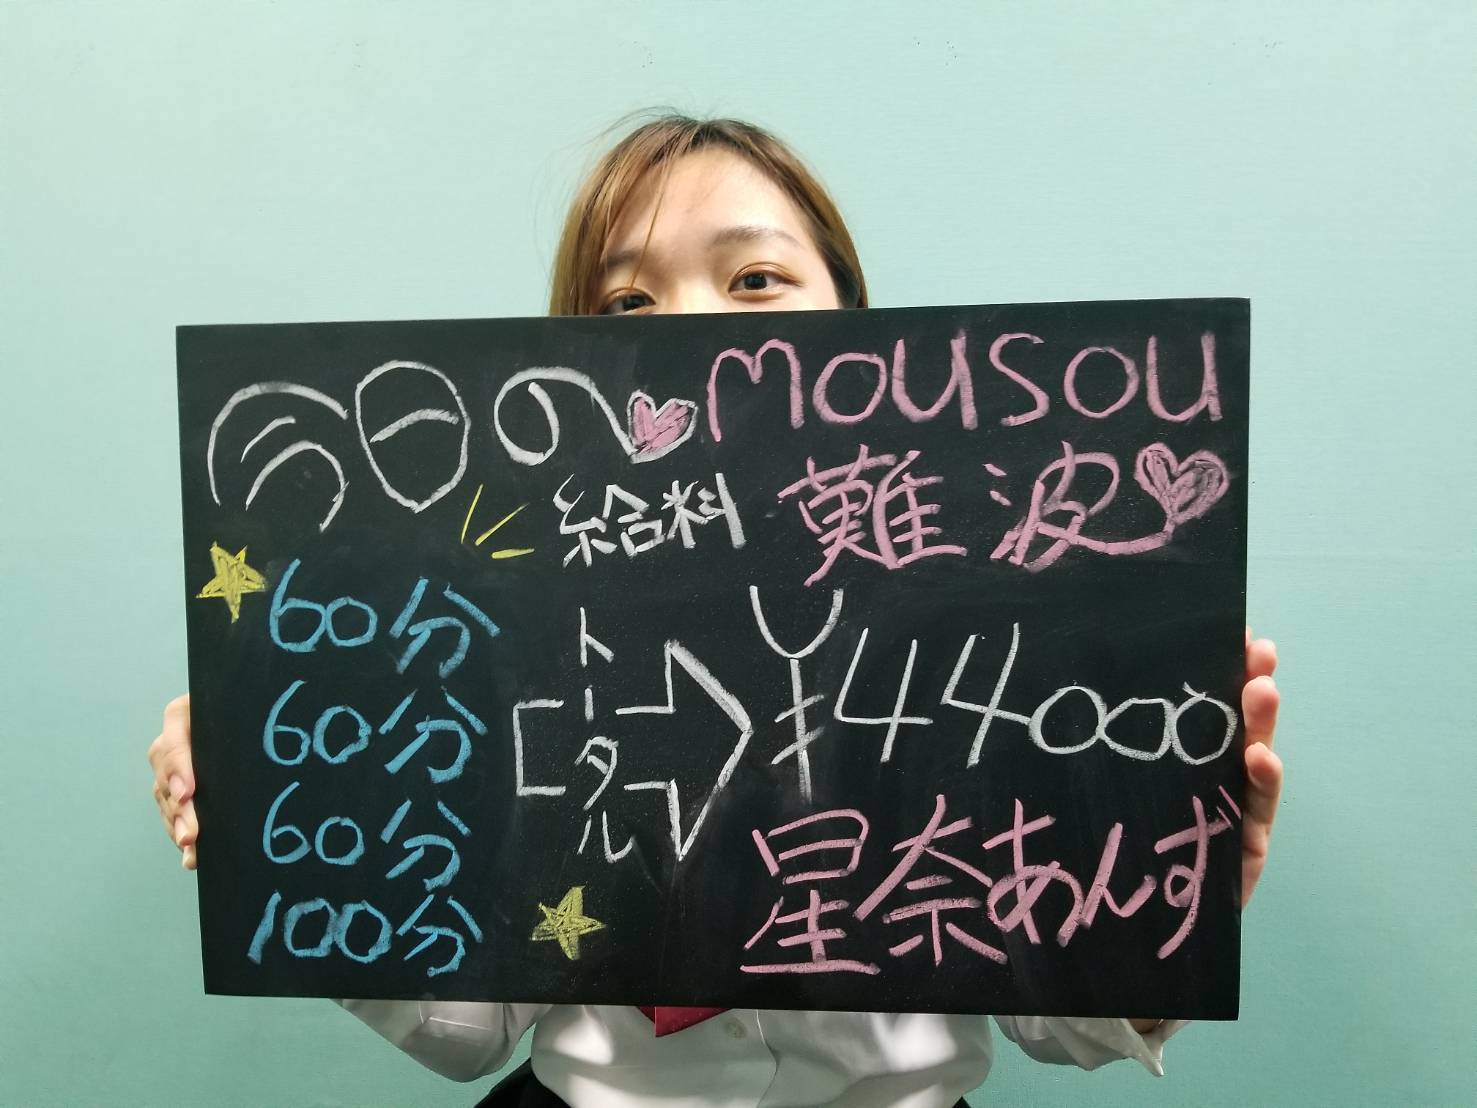 今日の mousou
給料 難波
60分
60分
60分
100分
トータル
¥44000
星奈あんず